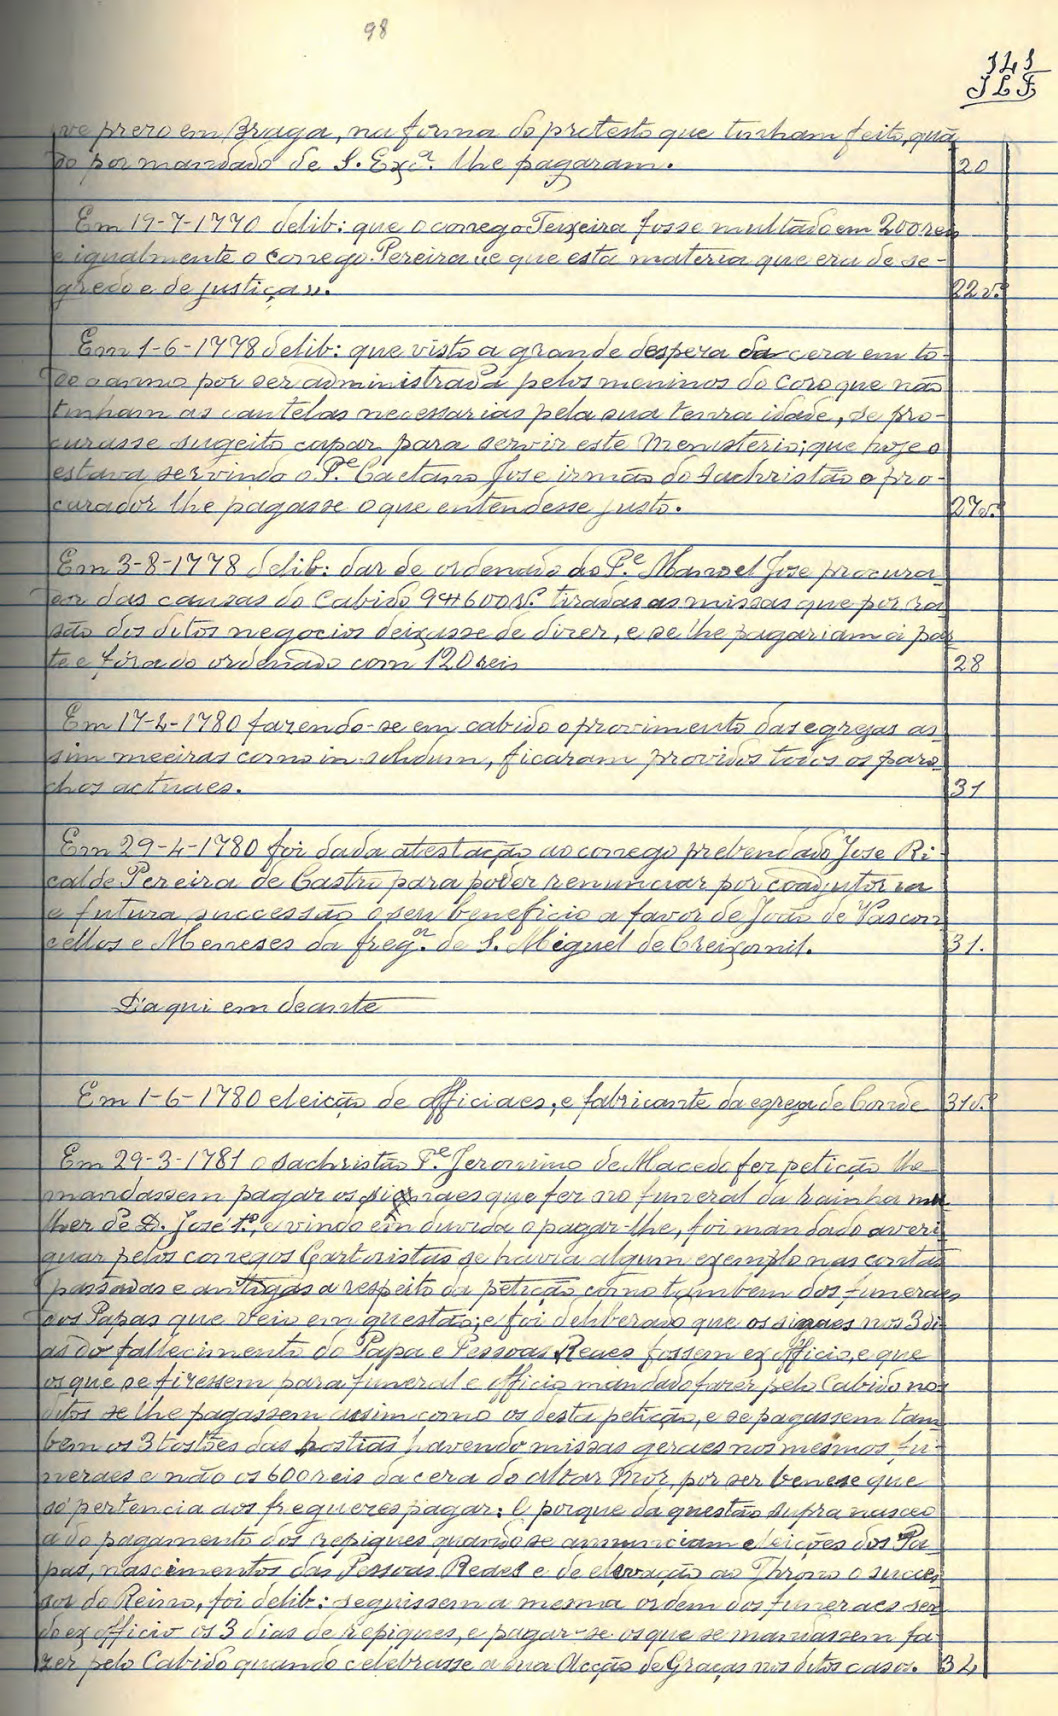 98
141
JLF
ve prezo em Braga, na forma do protesto que tinham feito, quã
do por mandado de S. Exciª. lhe pagaram. 20
Em 19-7-1770 delib: que o conego Teixeira fosse multado em 200 reis
e igualmente o conego Pereira "e que esta materia que era de se-
gredo e de justiça". 22v.
Em 1-6-1778 delib: que visto a grande despeza da cera em to-
do o anno por ser administrada pelos meninos do Coro que não
tinham as cautelas necessarias pela sua tenra idade, se pro-
curasse sugeito capaz para servir este Menisterio; que hoje o
estava servindo o P.e Caetano Jose irmão do sachristão e o pro-
curador lhe pagasse o que entendesse justo. 27v.
Em 3-8-1778 delib: dar de ordenado ao P.e Manoel Jose procura-
dor das causas do Cabido 9#600 r. tiradas as missas que por ra-
zão dos ditos negocios deixasse de dizer, e se lhe pagariam á par
te e fóra do ordenado com 120 reis 28
Em 17-4-1780 fazendo-se em cabido o provimento das egrejas as-
sim meeiras como in solidum, ficaram providos todos os paro-
chos actuaes. 31
Em 29-4-1780 foi dada atestação ao conego prebendado Jose Ri-
calde Pereira de Castro para poder renunciar por coadjutoria
e futura successão o seu beneficio a favor de João de Vascon
cellos e Menezes da freg.ª de S. Miguel de Creixomil. 31.
D'aqui em deante
Em 1-6-1780 eleição de officiaes, e fabricante da egreja de Conde 31v.
Em 29-3-1781 o sachristão P.e Jeronimo de Macedo fez petição lhe
mandassem pagar os signaes que fez no funeral da rainha mu
lher de D. José 1.º, e vindo em duvida o pagar-lhe, foi mandado averi
guar pelos conegos Cartoristas se havia algum exemplo nas contas
passadas e antigas a respeito da petição como tambem dos funeraes
dos Papas que veio em questão; e foi deliberado que os sinaes nos 3 di-
as do fallecimento do Papa e Pessoas Reaes fossem ex officio, e que
os que se fizessem para funeral e officio mandado fazer pelo Cabido nos
ditos se lhe pagassem assim como os desta petição, e se pagassem tam
bem os 3 tostões das hostias havendo missas geraes nos mesmos fu-
neraes e não os 600 reis da cera do altar Mor, por ser benese que
só pertencia aos freguezes pagar: E porque da questão supra nasceo
a do pagamento dos repiques quando se annunciam eleições dos Pa-
pas, nascimentos das Pessoas Reaes e de elevação ao Throno o succes
sor do Reino, foi delib: seguissem a mesma ordem dos funeraes sen
do ex officio os 3 dias de repiques, e pagar-se os que se mandassem fa
zer pelo Cabido quando celebrasse a sua Acção de Graças nos ditos casos. 34